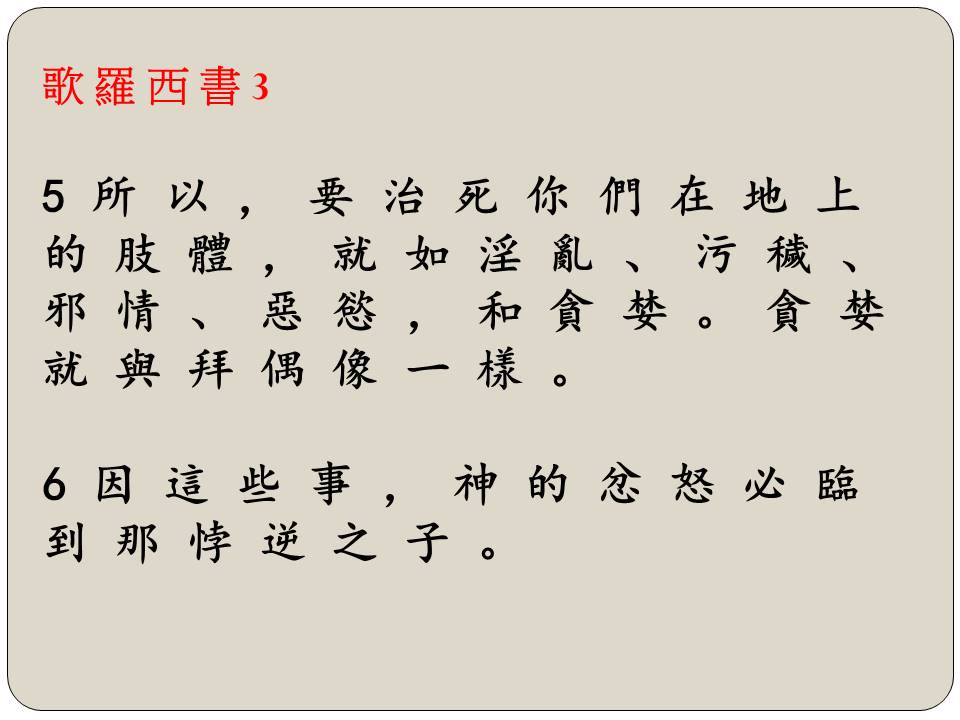 歌羅西書3
5 所以，要治死你們在地上
的肢體，就如淫亂、污穢、
邪情、惡慾，和貪婪。貪婪
就與拜偶像一樣。
6 因這些事，神的忿怒必臨
到那悖逆之子。